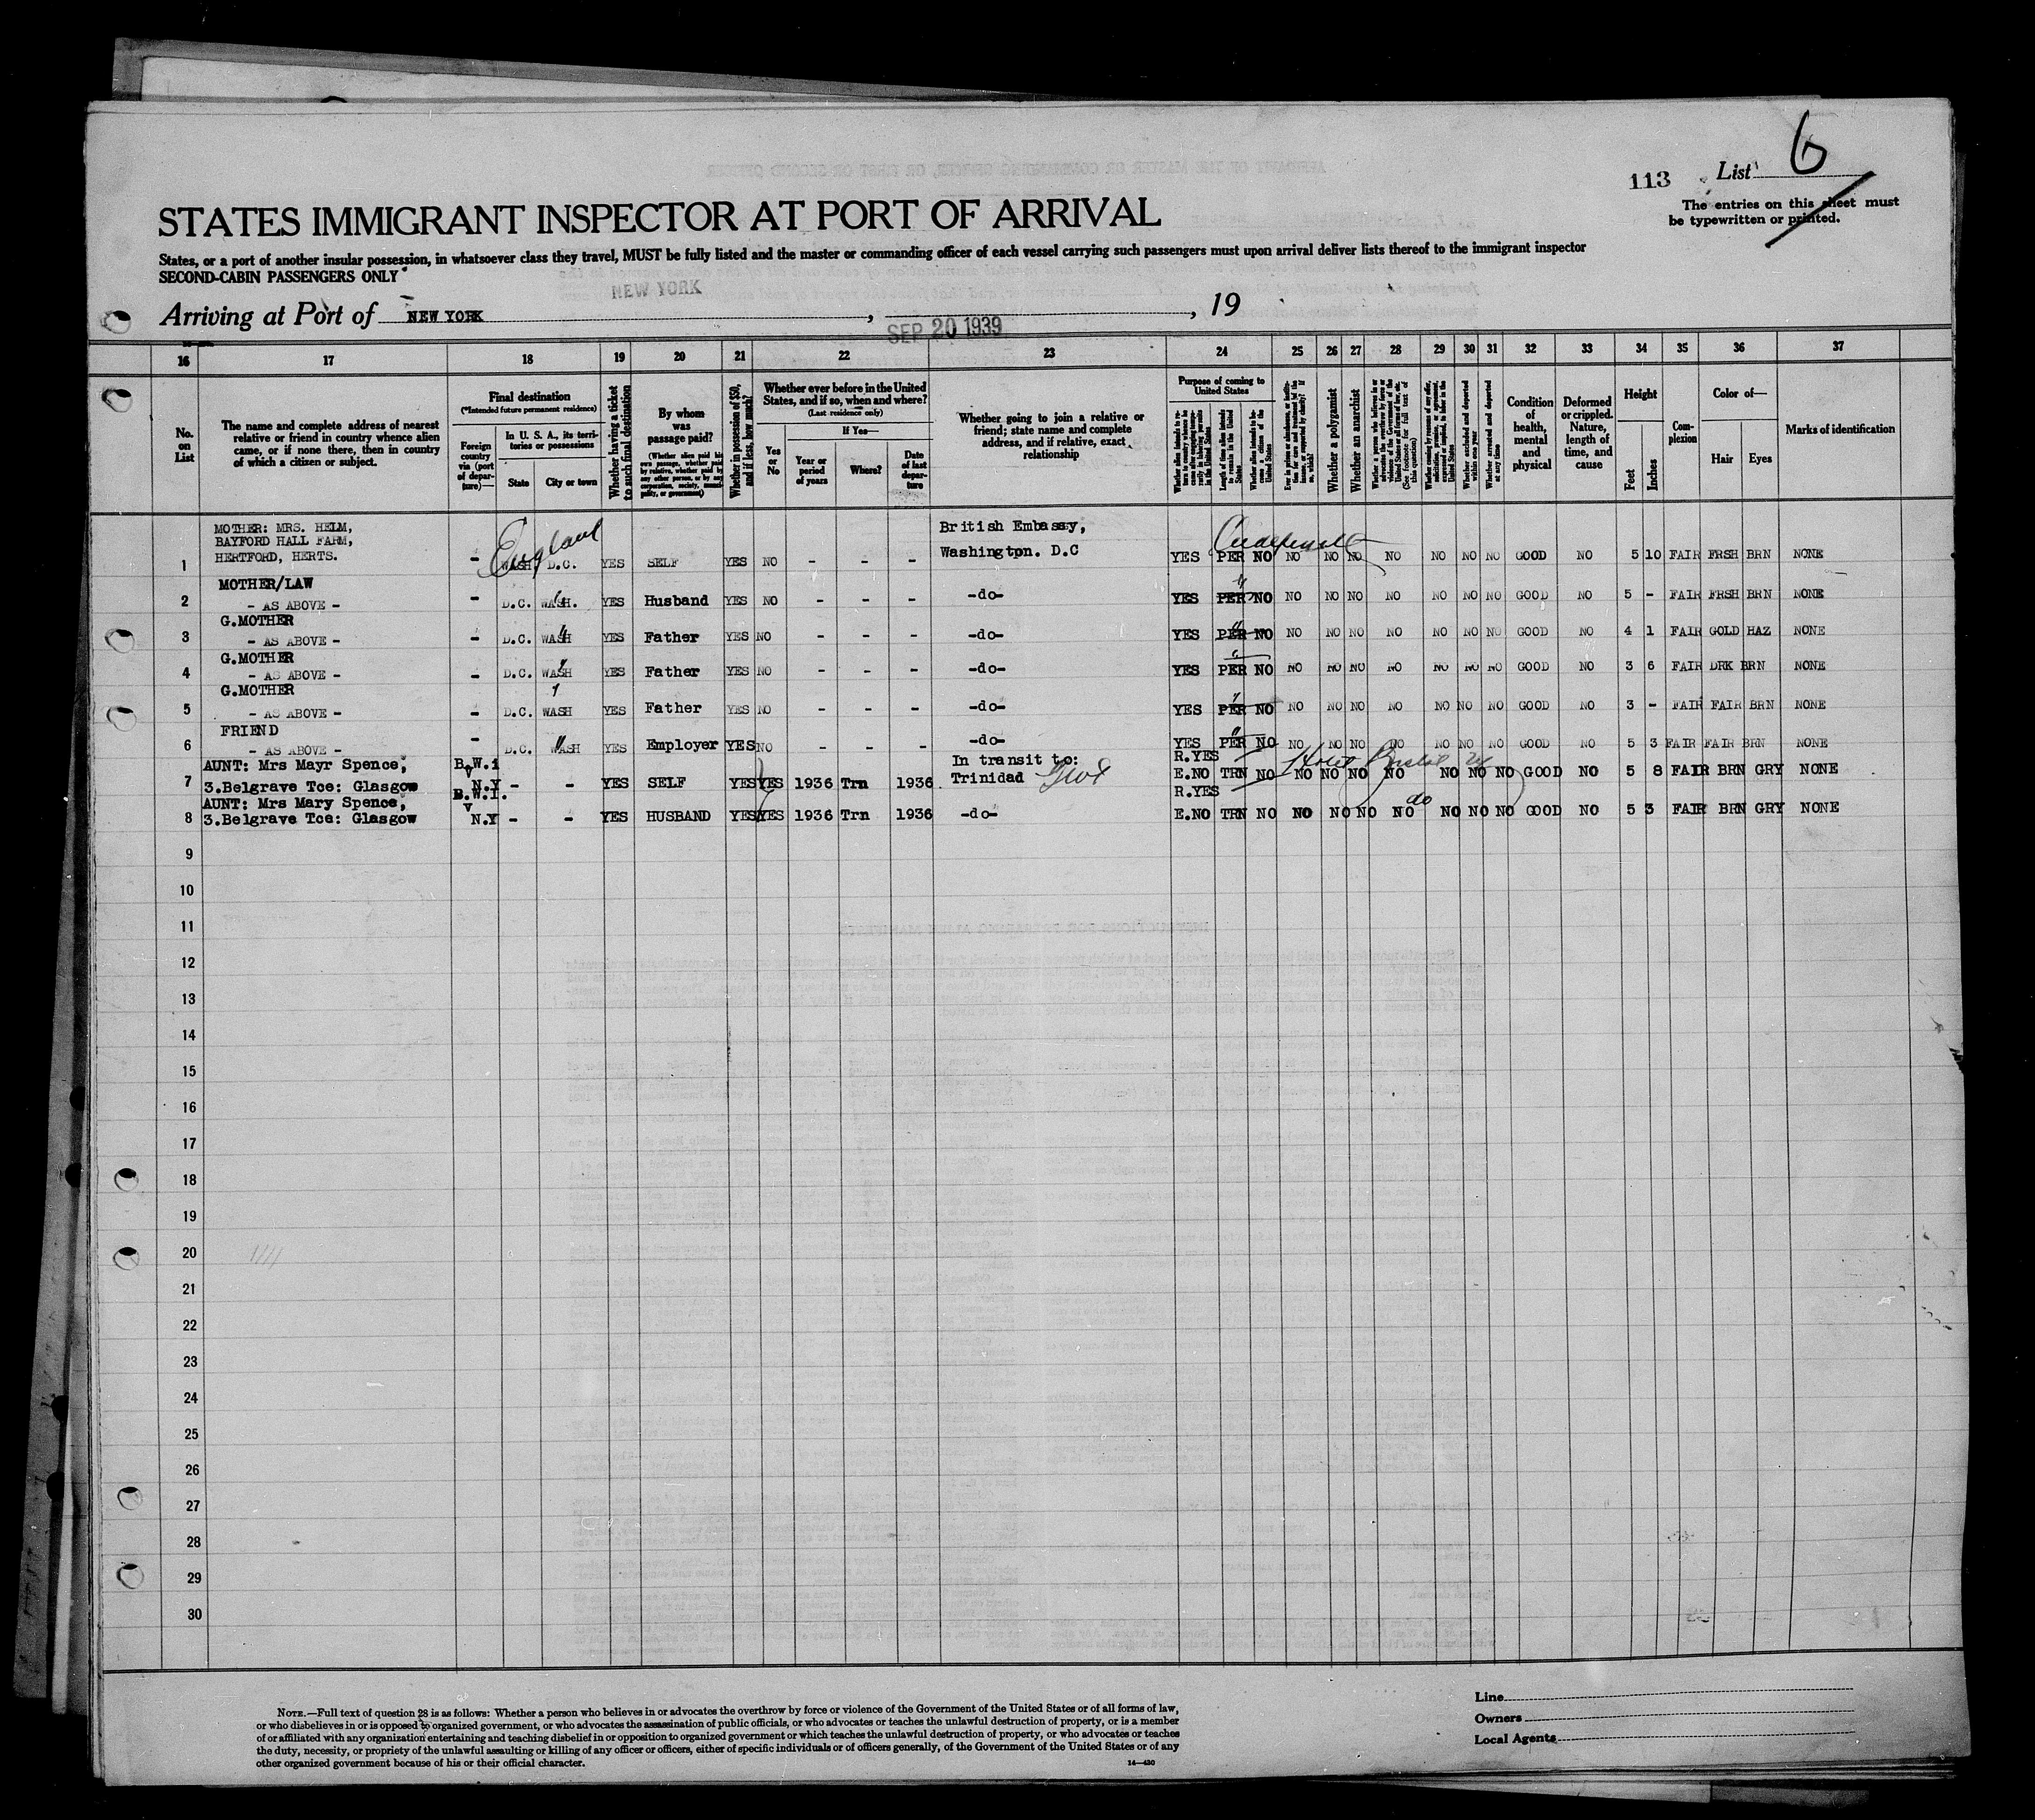 113
List 6
The entries on this sheet must
be typewritten or printed.
STATES IMMIGRANT INSPECTOR AT PORT OF ARRIVAL
States, or a port of another insular possession, in whatsoever class they travel, MUST be fully listed and the master or commanding officer of each vessel carrying such passengers must upon arrival deliver lists thereof to the immigrant inspector
SECOND-CABIN PASSENGERS ONLY
NEW YORK
Arriving at Port of NEW YORK, , 19
SEP 20 1939
16 17 18 19 20 21 22 23 24 25 26 27 28 29 30 31 32 33 34 35 36 37
No. on List
The name and complete address of nearest
relative or friend in country whence alien
came, or if none there, then in country
of which a citizen or subject.
Final destination
(*Intended future permanent residence)
Foreign country via (port of departure)—
In U. S. A., its territories or possessions
State
City or town
Whether having a ticket to such final destination
By whom was passage paid?
(Whether alien paid his own passage, whether paid by relative, whether paid by any other person, or by any corporation, society, municipality, or government)
Whether in possession of $50, and if less, how much?
Whether ever before in the United
States, and if so, when and where?
(Last residence only)
Yes or No
If Yes—
Year or period of years
Where?
Date of last departure
Whether going to join a relative or
friend; state name and complete
address, and if relative, exact
relationship
Purpose of coming to United States
Length of time alien intends to remain in the United States
Whether alien intends to become a citizen of the United States
Whether a polygamist
Whether an anarchist
Whether excluded and deported within one year
Whether arrested and deported at any time
Condition of health, mental and physical
Deformed or crippled. Nature, length of time, and cause
Height
Feet
Inches
Complexion
Color of—
Hair
Eyes
Marks of identification
MOTHER: MRS. HELM,
BAYFORD HALL FARM,
1 HERTFORD, HERTS. - England WASH D.C. YES SELF YES NO - - - British Embassy, Washington. D.C YES PER NO NO NO NO NO NO NO NO GOOD NO 5 10 FAIR FRSH BRN NONE
MOTHER/LAW
2 - AS ABOVE - - D.C. WASH. YES Husband YES NO - - - -do- YES PER NO NO NO NO NO NO NO NO GOOD NO 5 - FAIR FRSH BRN NONE
G.MOTHER
3 - AS ABOVE - - D.C. WASH YES Father YES NO - - - -do- YES PER NO NO NO NO NO NO NO NO GOOD NO 4 1 FAIR GOLD HAZ NONE
G.MOTHER
4 - AS ABOVE - - D.C. WASH YES Father YES NO - - - -do- YES PER NO NO NO NO NO NO NO NO GOOD NO 3 6 FAIR DRK BRN NONE
G.MOTHER
5 - AS ABOVE - - D.C. WASH YES Father YES NO - - - -do- YES PER NO NO NO NO NO NO NO NO GOOD NO 3 - FAIR FAIR BRN NONE
FRIEND
6 - AS ABOVE - - D.C. WASH YES Employer YES NO - - - -do- YES PER NO NO NO NO NO NO NO NO GOOD NO 5 3 FAIR FAIR BRN NONE
AUNT: Mrs Mayr Spence, B.W.i In transit to: R.YES Hotel Bristol
7 3.Belgrave Tce: Glasgow v N.Y - - YES SELF YES YES 1936 Trn 1936 Trinidad E.NO TRN NO NO NO NO NO NO NO NO GOOD NO 5 8 FAIR BRN GRY NONE
AUNT: Mrs Mary Spence, B.W.I. R.YES do
8 3.Belgrave Tce: Glasgow v N.Y - - YES HUSBAND YES YES 1936 Trn 1936 -do- E.NO TRN NO NO NO NO NO NO NO NO GOOD NO 5 3 FAIR BRN GRY NONE
9
10
11
12
13
14
15
16
17
18
19
20
21
22
23
24
25
26
27
28
29
30
NOTE.—Full text of question 28 is as follows: Whether a person who believes in or advocates the overthrow by force or violence of the Government of the United States or of all forms of law,
or who disbelieves in or is opposed to organized government, or who advocates the assassination of public officials, or who advocates or teaches the unlawful destruction of property, or is a member
of or affiliated with any organization entertaining and teaching disbelief in or opposition to organized government or which teaches the unlawful destruction of property, or who advocates or teaches
the duty, necessity, or propriety of the unlawful assaulting or killing of any officer or officers, either of specific individuals or of officers generally, of the Government of the United States or of any
other organized government because of his or their official character.
14—430
Line
Owners
Local Agents